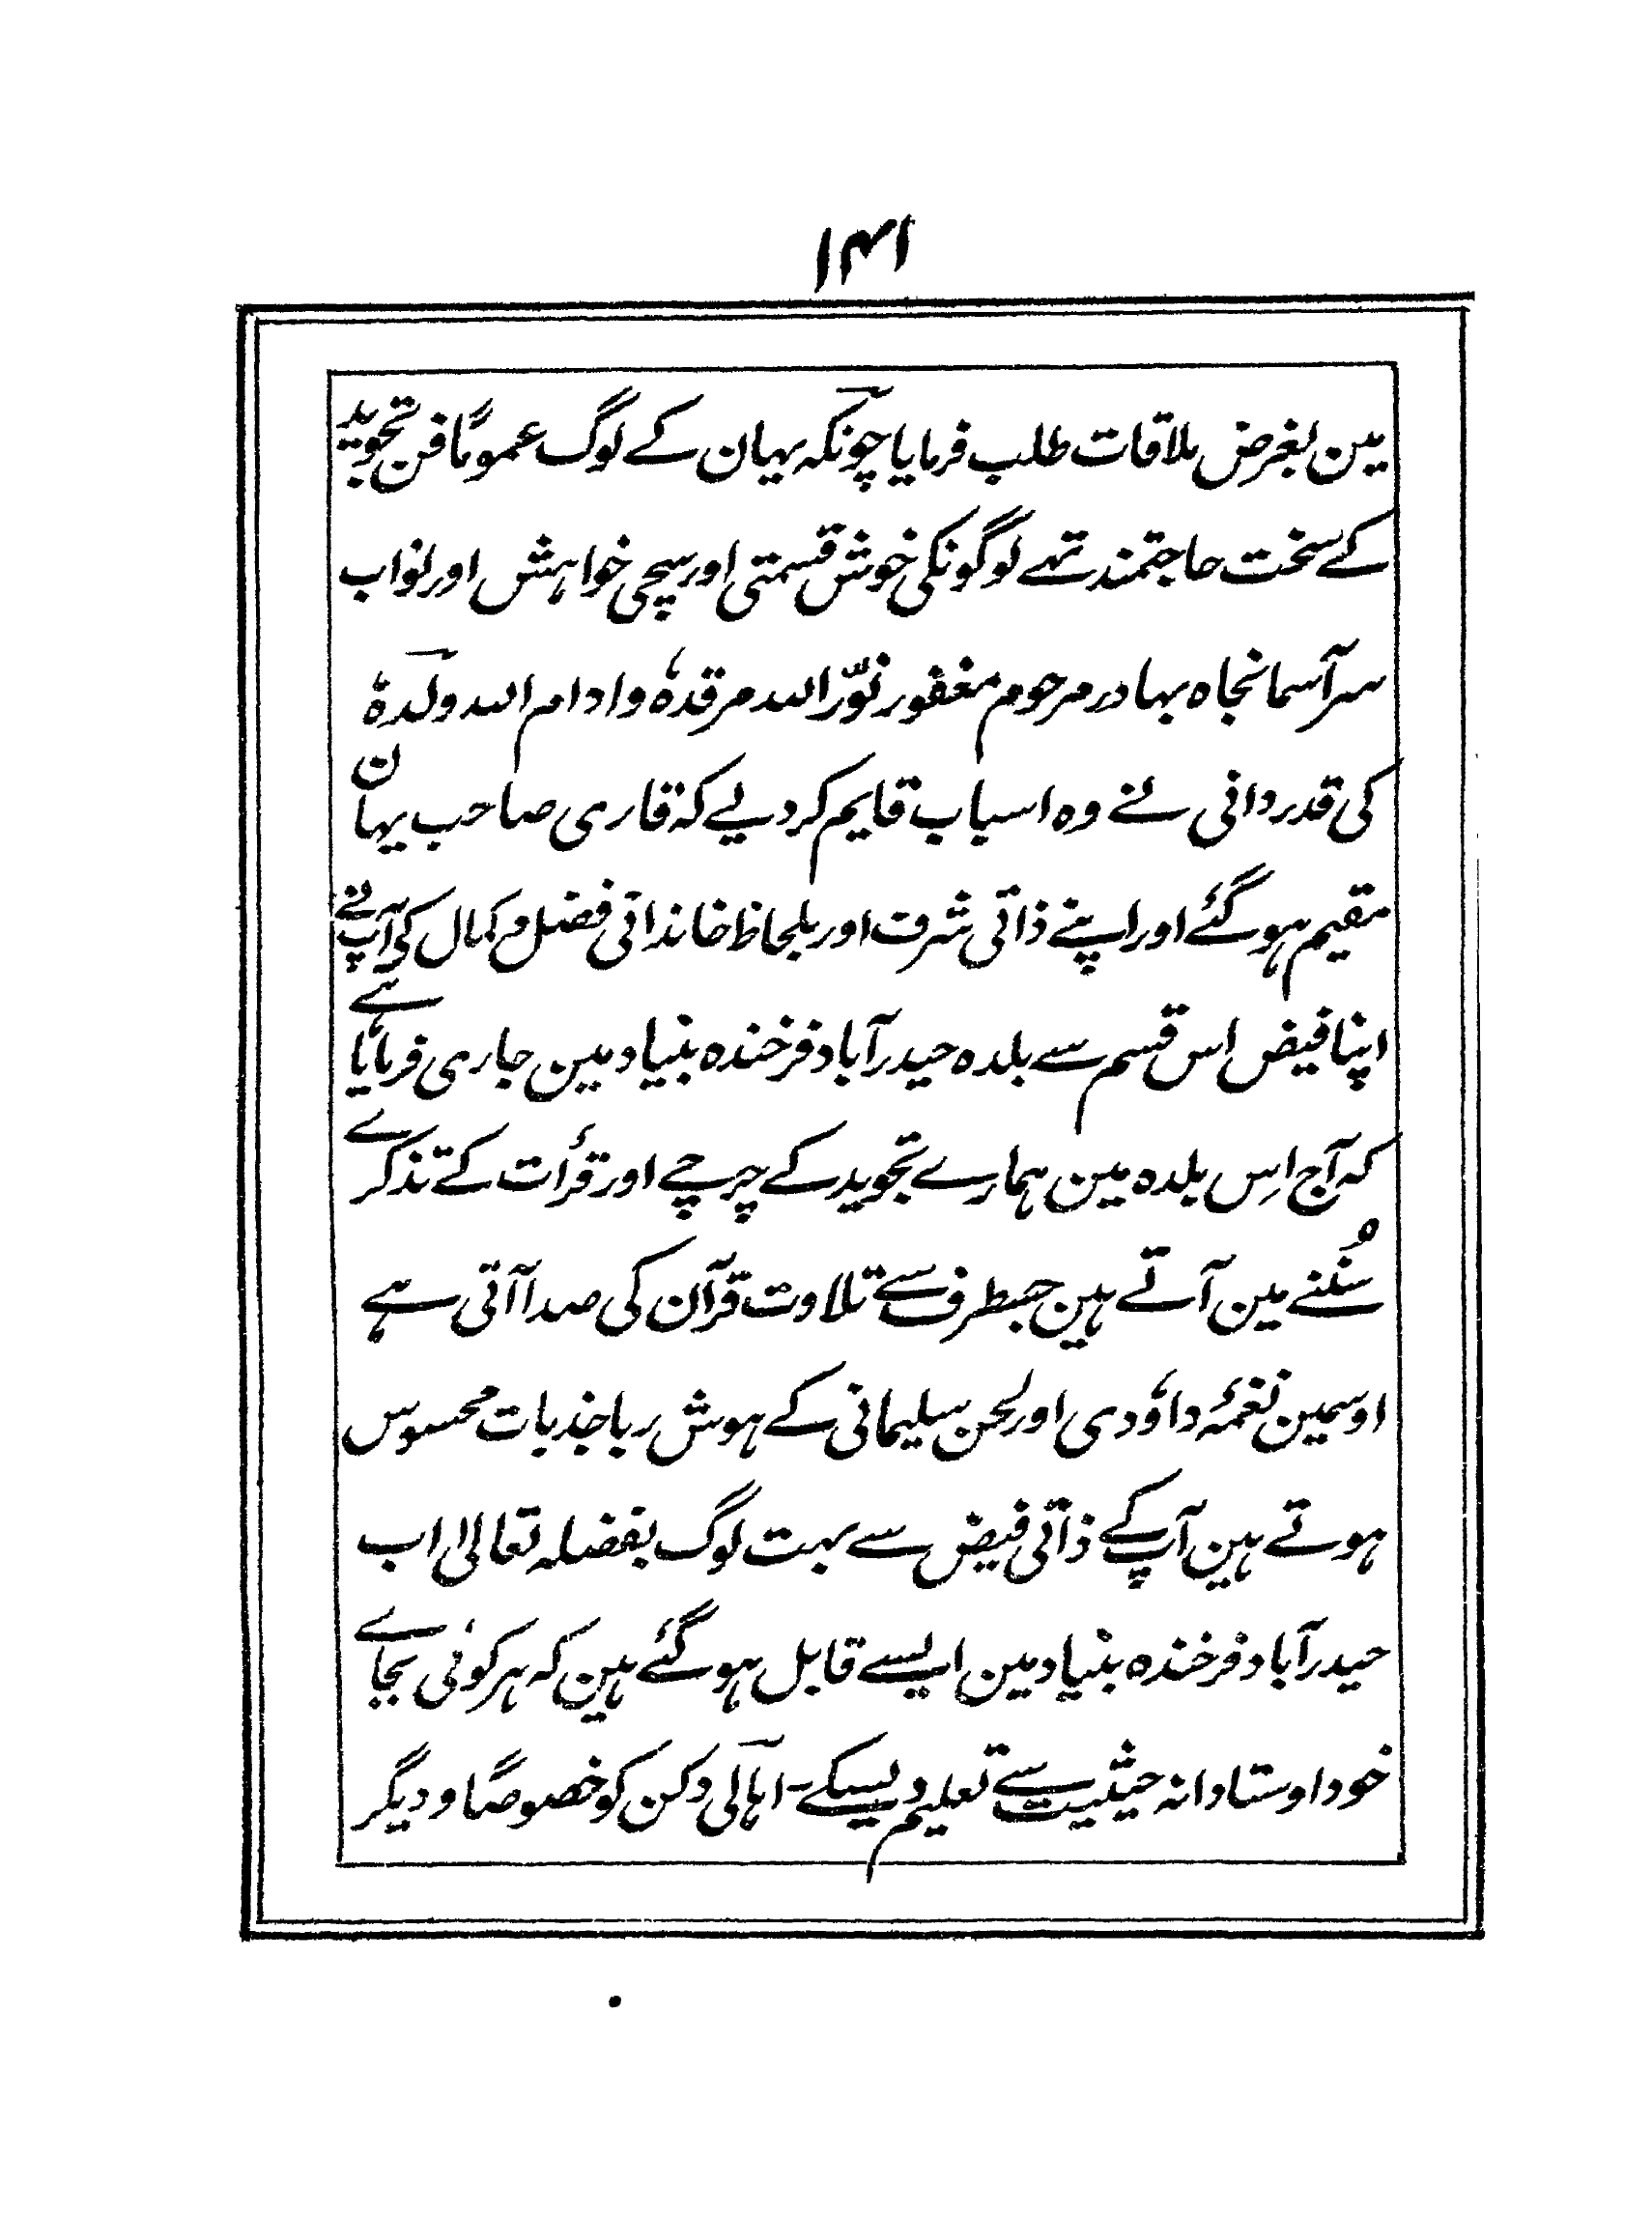 ۱۴۱
مین بغرض ملاقات طلب فرمایا چونکہ یہان کے لوگ عموماً فن تجوید
کے سخت حاجتمند تہے لوگونکی خوش قسمتی اور سچی خواہش اور نواب
سر آسمانجاہ بہادر مرحوم مغفور نوّر اللہ مرقدہٗ وادام اللہ ولدہٗ
کی قدردانی نے وہ اسباب قایم کردیے کہ قاری صاحب یہان
مقیم ہوگئے اور اپنے ذاتی شرف اور بلحاظ خاندانی فضل و کمال کے آپنے
اپنا فیض اس قسم سے بلدہ حیدرآباد فرخندہ بنیاد مین جاری فرمایا ہے
کہ آج اِس بلدہ مین ہمارے تجوید کے چرچے اور قرأت کے تذکرے
سُننے مین آتے ہین جسطرف سے تلاوت قرآن کی صدا آتی ہے
اوسمین نغمۂ داؤدی اور لحن سلیمانی کے ہوش ربا جذبات محسوس
ہوتے ہین آپ کے ذاتی فیض سے بہت لوگ بفضلہ تعالیٰ اب
حیدرآباد فرخندہ بنیاد مین ایسے قابل ہوگئے ہین کہ ہر کوئی بجاے
خود اوستادانہ حیثیت سے تعلیم دیسکے۔ اہالی دکن کو خصوصاً و دیگر